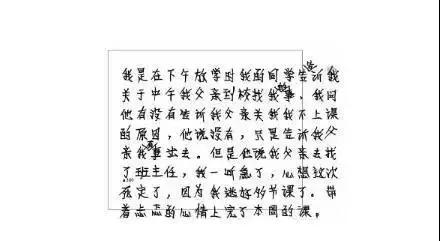 我是在下午放学时我的同学告诉我
关于中午我父亲到校找我事。我问
他有没有告诉我父亲关我我不上课
的原因，他说没有，只是告诉我父
亲我出去。但是他说我父亲去找
了班主任，我一听急了，心想这次
死定了，因为我逃好多节课了。带
着忐忑的心情上完了本周的课。